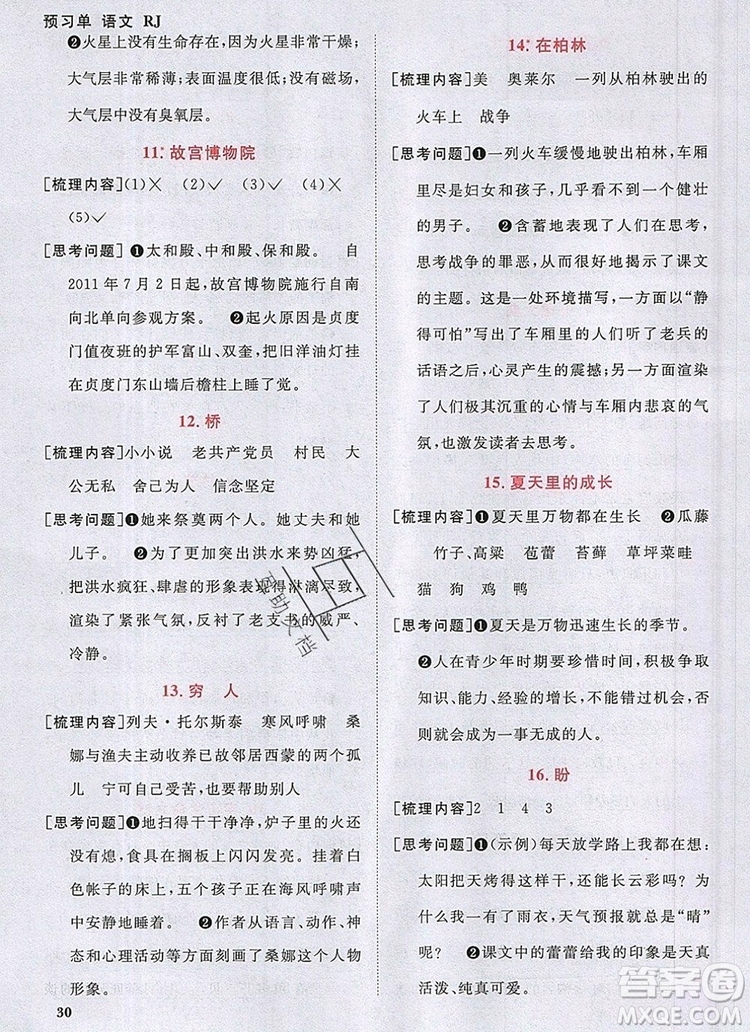 预习单 语文 RJ
❷火星上没有生命存在,因为火星非常干燥;
大气层非常稀薄;表面温度很低;没有磁场,
大气层中没有臭氧层。
11* 故宫博物院
[梳理内容](1)× (2)✓ (3)✓ (4)×
(5)✓
[思考问题]❶太和殿、中和殿、保和殿。 自
2011年7月2日起,故宫博物院施行自南
向北单向参观方案。 ❷起火原因是贞度
门值夜班的护军富山、双奎,把旧洋油灯挂
在贞度门东山墙后檐柱上睡了觉。
12. 桥
[梳理内容]小小说 老共产党员 村民 大
公无私 舍己为人 信念坚定
[思考问题]❶她来祭奠两个人。她丈夫和她
儿子。 ❷这样写突出洪水来势凶猛,
把洪水疯狂、肆虐的形象表现得淋漓尽致,
渲染了紧张气氛,反衬了老支书的威严、
冷静。
13. 穷 人
[梳理内容]列夫·托尔斯泰 寒风呼啸 桑
娜与渔夫主动收养已故邻居西蒙的两个孤
儿 宁可自己受苦,也要帮助别人
[思考问题]❶地扫得干干净净,炉子里的火还
没有熄,食具在搁板上闪闪发亮。挂着白
色帐子的床上,五个孩子正在海风呼啸声
中安静地睡着。 ❷作者从语言、动作、神
态和心理活动等方面刻画了桑娜这个人物
形象。
30
14* 在柏林
[梳理内容]美 奥莱尔 一列从柏林驶出的
火车上 战争
[思考问题]❶一列火车缓慢地驶出柏林,车厢
里尽是妇女和孩子,几乎看不到一个健壮
的男子。 ❷含蓄地表现了人们在思考,
思考战争的罪恶,从而更深刻地揭示了课文
的主题。这是一处环境描写,作者以“静
得可怕”写出了车厢里的人们听了老兵的
话语之后,心灵产生的震撼;另一方面渲染
了老兵沉重的心情与车厢内悲哀的气
氛,也引发读者去思考。
15. 夏天里的成长
[梳理内容]❶夏天里万物都在生长 ❷瓜藤
竹子、高粱 苞蕾 苔藓 草坪菜畦
猫 狗 鸡 鸭
[思考问题]❶夏天是万物迅速生长的季节。
❷人在青少年时期要珍惜时间,积极获取
知识、能力、经验的增长,不断完善自己,
成为一个有一番成就的人。
16. 盼
[梳理内容]2 1 4 3
[思考问题]❶(示例)每天放学路上我都在想:
太阳把天烤得这样干,还能长云彩吗?为
什么我一有了雨衣,天气预报就总是“晴”
呢? ❷课文中的蕾蕾给我的印象是天真
活泼、纯真可爱。
答案圈
MXQE.COM